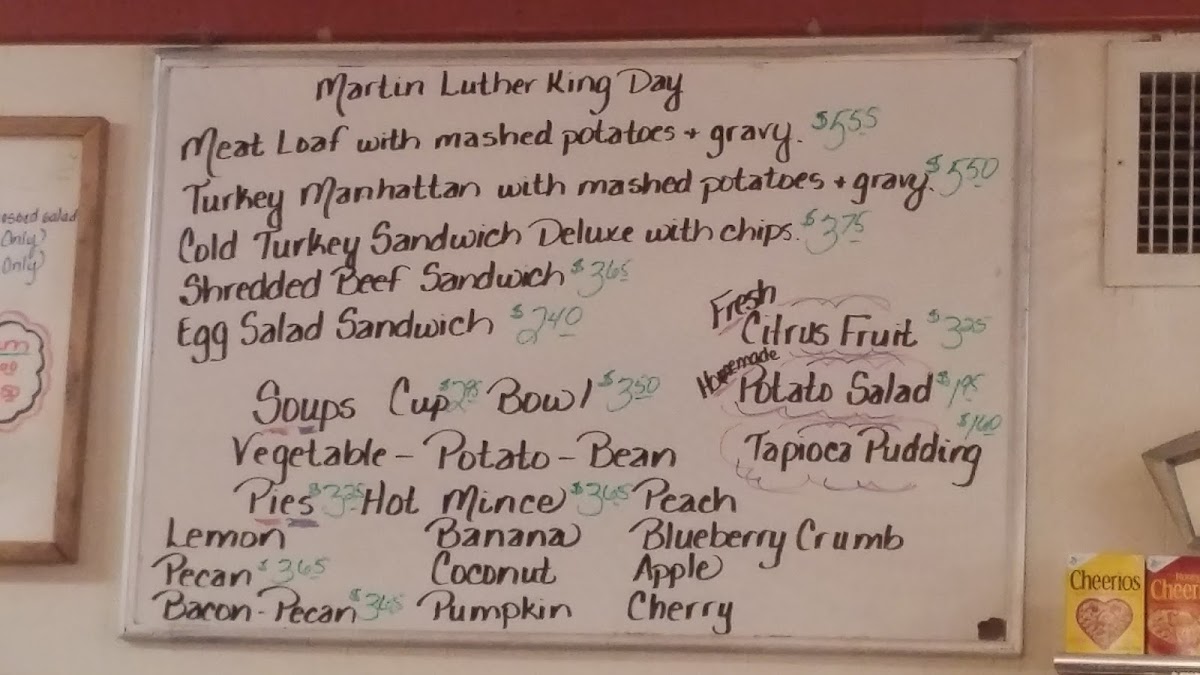 Martin Luther King Day
Meat Loaf with mashed potatoes + gravy. $5.55
Turkey Manhattan with mashed potatoes + gravy. $5.50
Cold Turkey Sandwich Deluxe with chips. $3.75
Shredded Beef Sandwich $3.65
Egg Salad Sandwich $2.40
Fresh
Citrus Fruit $3.25
Homemade
Potato Salad $1.95
Tapioca Pudding $1.60
Soups Cup $2.95 Bowl $3.50
Vegetable - Potato - Bean
Pies $3.25 Hot Mince $3.65 Peach
Lemon Banana Blueberry Crumb
Pecan $3.65 Coconut Apple
Bacon-Pecan $3.65 Pumpkin Cherry
salad
Only)
Only)
Cheerios
Cheer